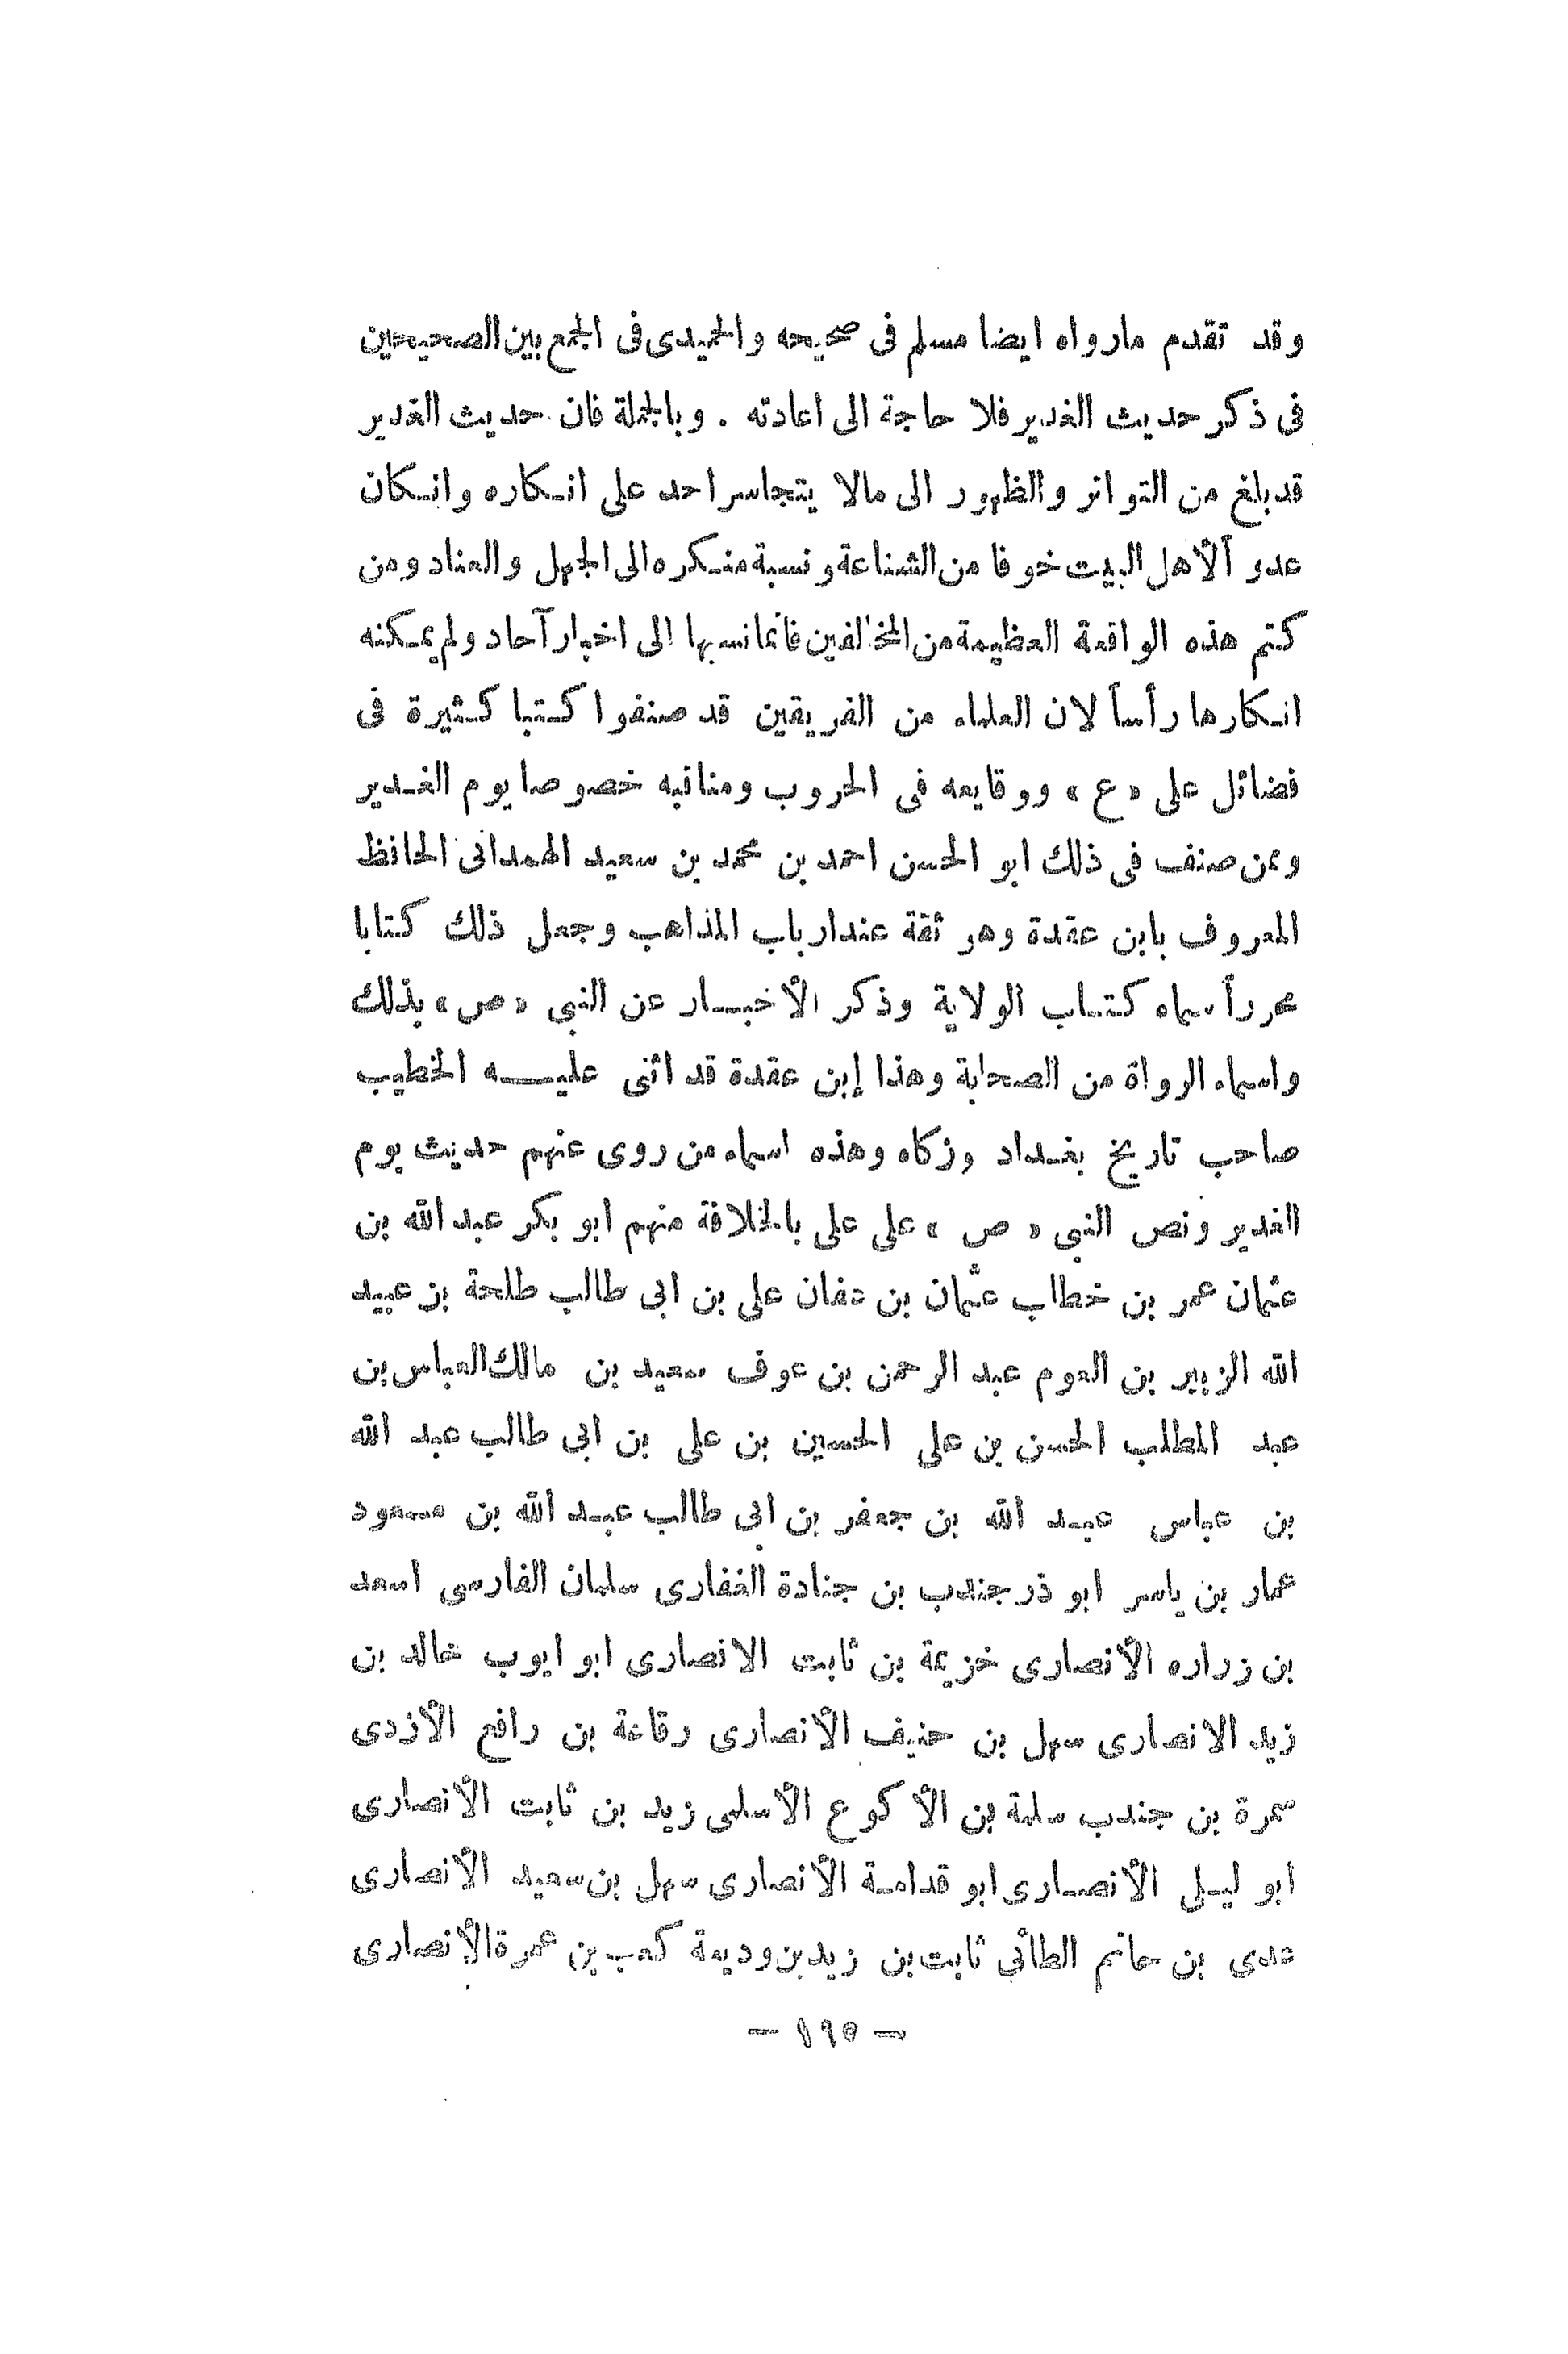 وقد تقدم مارواه ايضا مسلم فى صحيحه والحميدى فى الجمع بين الصحيحين
فى ذكر حديث الغدير فلا حاجة الى اعادته . وبالجملة فان حديث الغدير
قد بلغ من التواتر والظهور الى مالا يتجاسر احد على انكاره وانكان
عدو ألأهل البيت خوفا من الشناعة ونسبة منكره الى الجهل والعناد ومن
كتم هذه الواقعة العظيمة من المخالفين فانما نسبها الى اخبار آحاد ولم يمكنه
انكارها رأساً لان العلماء من الفريقين قد صنفوا كتبا كثيرة فى
فضائل على «ع» ووقايعه فى الحروب ومناقبه خصوصا يوم الغدير
وممن صنف فى ذلك ابو الحسن احمد بن محمد بن سعيد الهمدانى الحافظ
المعروف بابن عقدة وهو ثقة عند ارباب المذاهب وجعل ذلك كتابا
محرراً سماه كتاب الولاية وذكر الأخبار عن النبى «ص» بذلك
واسماء الرواة من الصحابة وهذا إبن عقدة قد اثنى عليه الخطيب
صاحب تاريخ بغداد وزكاه وهذه اسماء من روى عنهم حديث يوم
الغدير ونص النبى « ص » على على بالخلافة منهم ابو بكر عبد الله بن
عثمان عمر بن خطاب عثمان بن عفان على بن ابى طالب طلحة بن عبيد
الله الزبير بن العوم عبد الرحمن بن عوف سعيد بن مالك العباس بن
عبد المطلب الحسن بن على الحسين بن على بن ابى طالب عبد الله
بن عباس عبد الله بن جعفر بن ابى طالب عبد الله بن مسعود
عمار بن ياسر ابو ذر جندب بن جنادة الغفارى سلمان الفارسى اسعد
بن زراره الأنصارى خزيمة بن ثابت الانصارى ابو ايوب خالد بن
زيد الانصارى سهل بن حنيف الأنصارى رفاعة بن رافع الأزدى
سمرة بن جندب سلمة بن الأكوع الأسلمى زيد بن ثابت الأنصارى
ابو ليلى الأنصارى ابو قدامة الأنصارى سهل بن سعيد الأنصارى
عدى بن حاتم الطائي ثابت بن زيد بن وديعة كعب بن عمرة الأنصارى
— ١٩٥ —